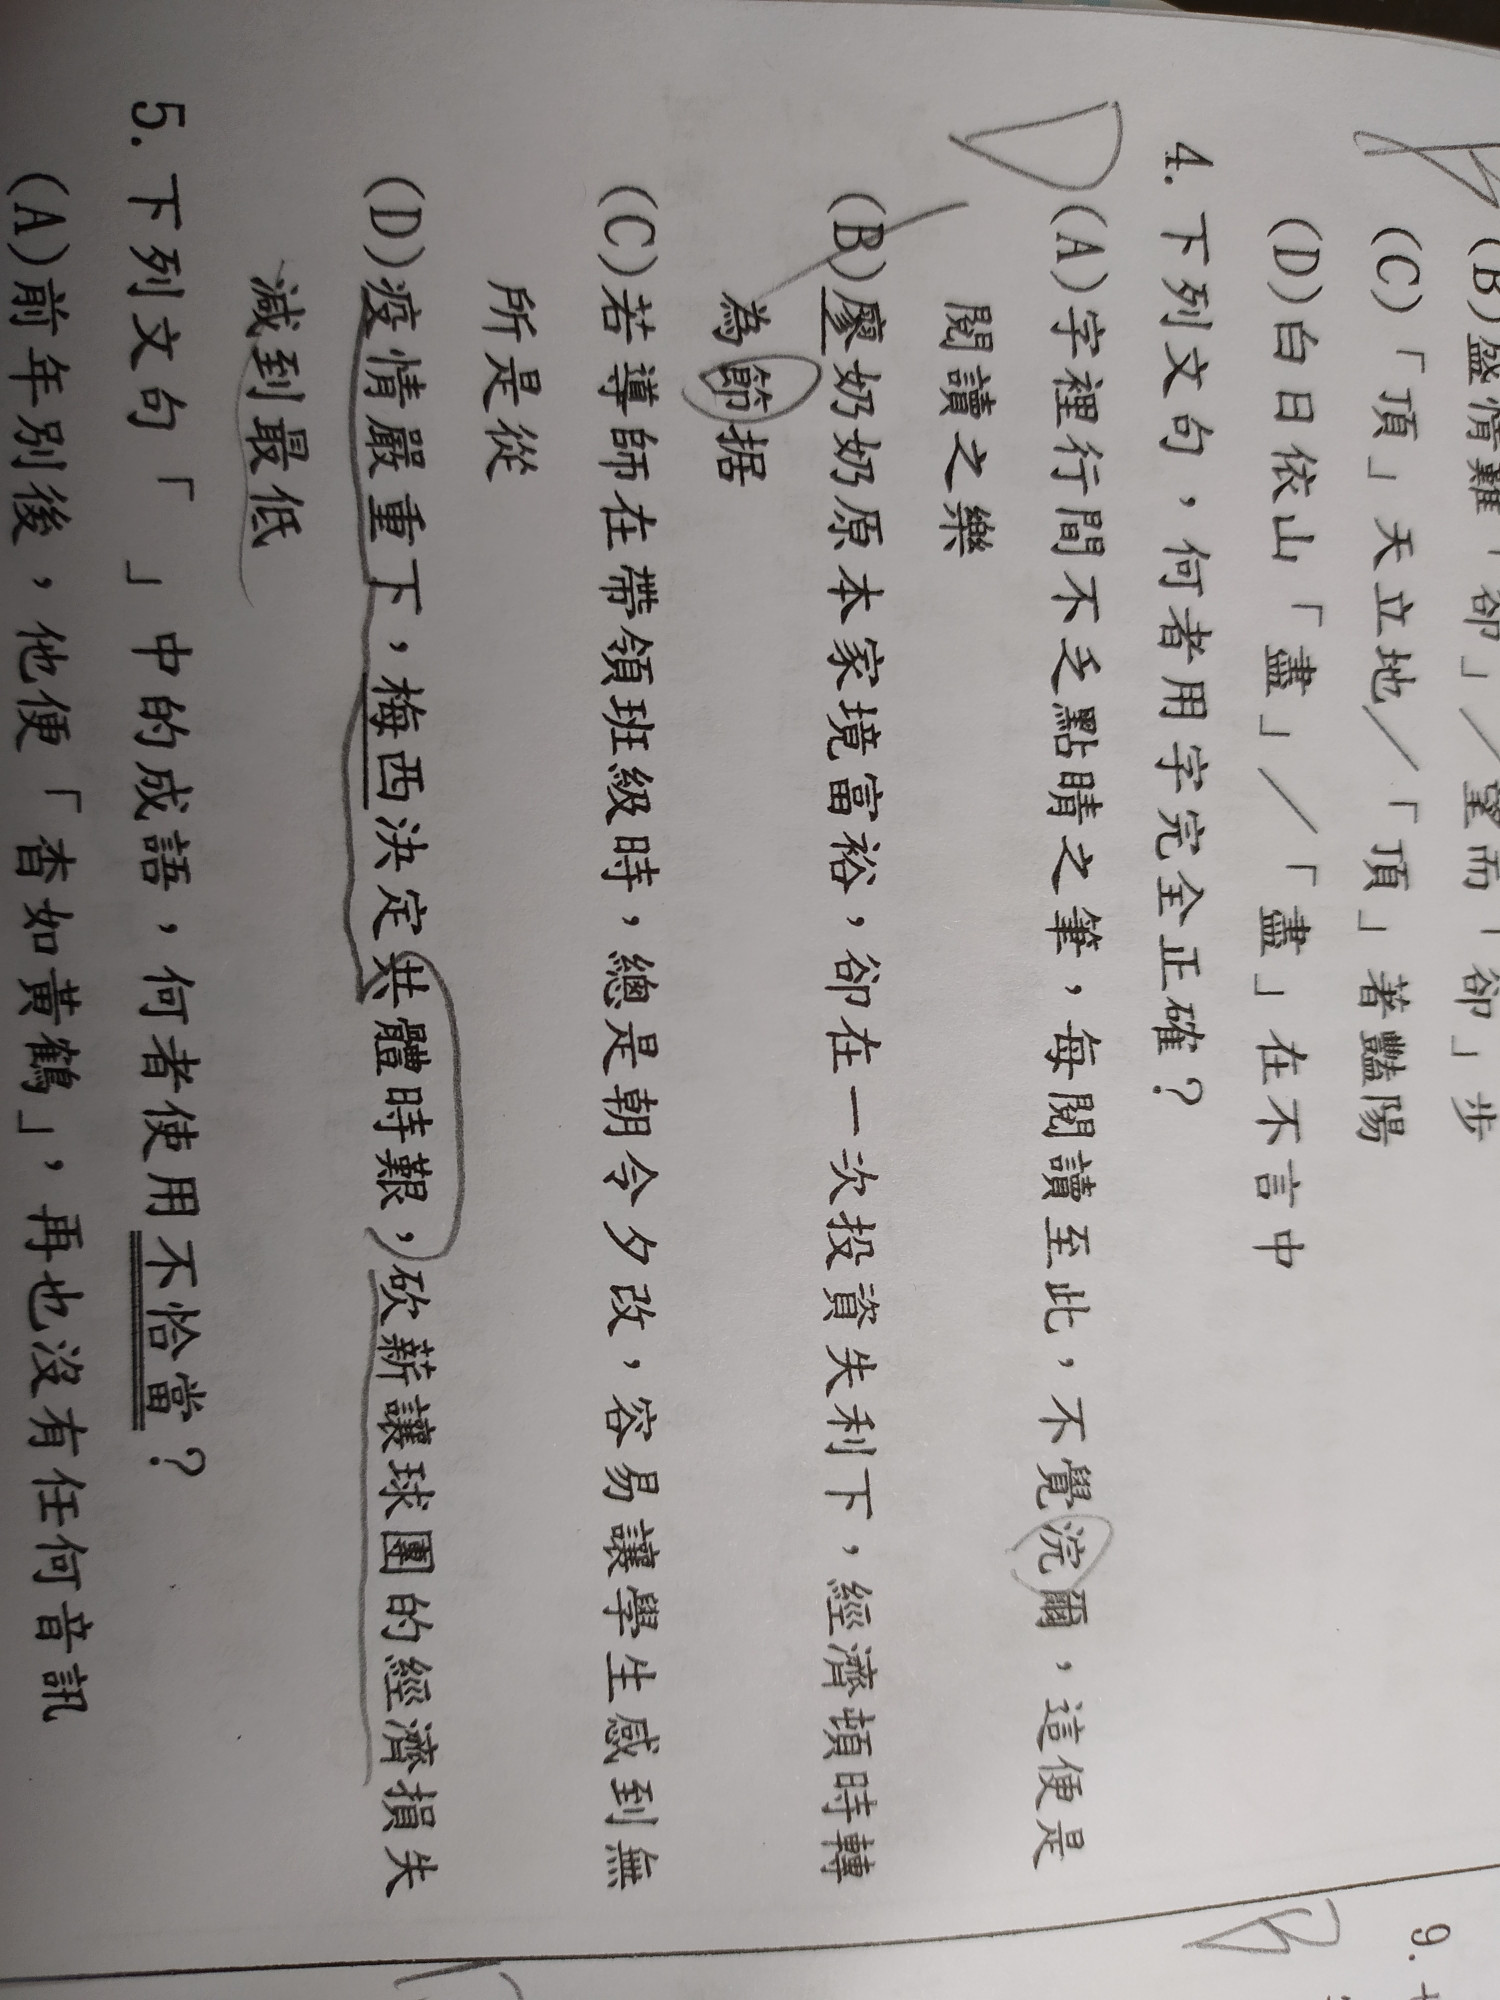 (B)盛情難「卻」／望而「卻」步
(C)「頂」天立地／「頂」著豔陽
(D)白日依山「盡」／「盡」在不言中
4. 下列文句，何者用字完全正確？
D
(A)字裡行間不乏點睛之筆，每閱讀至此，不覺浣爾，這便是
閱讀之樂
(B)廖奶奶原本家境富裕，卻在一次投資失利下，經濟頓時轉
為節据
(C)若導師在帶領班級時，總是朝令夕改，容易讓學生感到無
所是從
(D)疫情嚴重下，梅西決定共體時艱，砍薪讓球團的經濟損失
減到最低
5. 下列文句「　」中的成語，何者使用不恰當？
(A)前年別後，他便「杳如黃鶴」，再也沒有任何音訊
9.
B